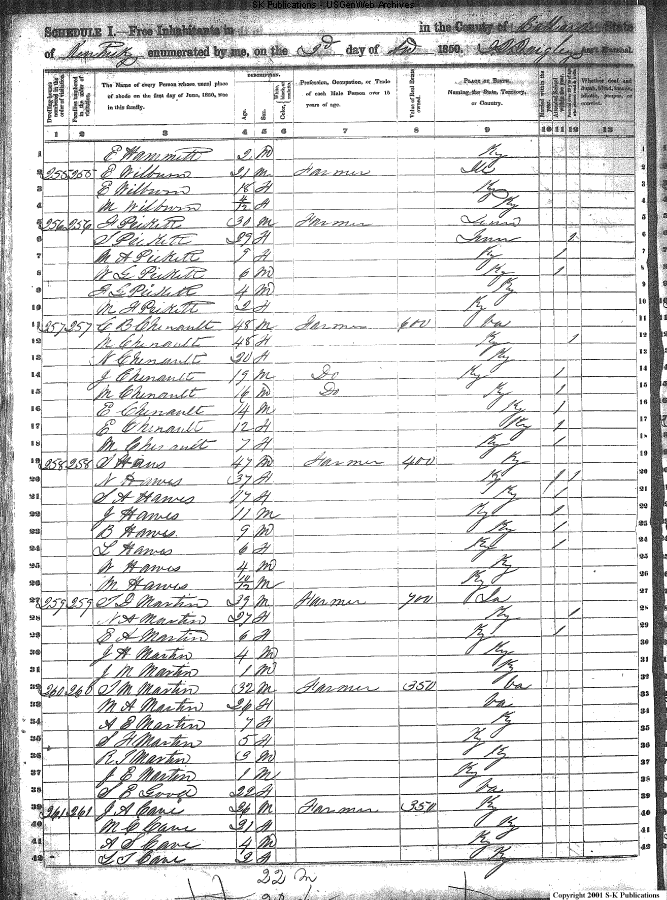 S-K Publications - USGenWeb Archives
SCHEDULE I.—Free Inhabitants in in the County of State
of Kentucky enumerated by me, on the 2d day of 1850. Ass't Marshal.
Dwelling-houses numbered in the order of visitation.
Families numbered in the order of visitation.
The Name of every Person whose usual place of abode on the first day of June, 1850, was in this family.
DESCRIPTION.
Age.
Sex.
Color,
Profession, Occupation, or Trade of each Male Person over 15 years of age.
Value of Real Estate owned.
PLACE OF BIRTH. Naming the State, Territory, or Country.
Married within the year.
Attended School within the year.
Whether deaf and dumb, blind, insane, idiotic, pauper, or convict.
1 2 3 4 5 6 7 8 9 10 11 12 13
1 E Hammett 2 M Ky 1
2 255 255 E Wilburn 21 M Farmer 2
3 E Wilburn 18 F Ky 3
4 M Wilburn F Ky 4
5 256 256 Pickett 30 M Farmer Tenn 5
6 S Pickett 29 F Tenn 1 6
7 M A Pickett 9 F Ky 1 7
8 W L Pickett 6 M Ky 1 8
9 J L Pickett 4 M Ky 9
10 M F Pickett 2 F Ky 10
11 257 257 C B Chenault 48 M Farmer 600 Va 11
12 M Chenault 48 F Ky 1
13 N Chenault 20 F Ky
14 J Chenault 19 M Do Ky 1
15 M Chenault 16 M Do Ky 1
16 E Chenault 14 M Ky 1
17 E Chenault 12 F Ky 1
18 M Chenault 7 F Ky 1
19 258 258 S Haws 47 M Farmer 400 Ky
20 N Hawes 37 F Ky 1 1
21 S A Hawes 17 F Ky 1
22 J Hawes 11 M Ky 1
23 B Hawes 9 M Ky 1
24 L Hawes 6 F Ky 1
25 W Hawes 4 M Ky
26 M Hawes 10/12 M Ky
27 259 259 S D Martin 39 M Farmer 700
28 N A Martin 27 F Ky 1
29 E A Martin 6 F Ky 1
30 J H Martin 4 M Ky
31 J M Martin 1 M Ky
32 260 260 S M Martin 32 M Farmer 350 Va
33 M A Martin 26 F Va
34 A E Martin 7 F Ky
35 S F Martin 5 F Ky
36 R S Martin 3 M Ky
37 J E Martin 1 M Ky
38 S E Good 22 F Va
39 261 261 J A Cave 26 M Farmer 350 Ky
40 M C Cave 21 F Ky
41 A S Cave 4 M Ky
42 S T Cave 2 F Ky
22 M
Copyright 2001 S-K Publications